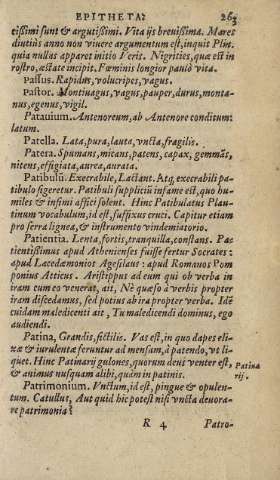 EPITHETA. 263
tißimi sunt & argutißimi. Vita ijs breuißima. Mares
diutiùs anno non viuere argumentum est, inquit Plin.
quia nullas apparet initio Veris. Nigrities, quæ est in
rostro, æstate incipit. Fœminis longior paulò vita.
Passus. Rapidus, volucripes, vagus.
Pastor. Montiuagus, vagus, pauper, durus, monta-
nus, egenus, vigil.
Patauium. Antenoreum, ab Antenore conditum:
latum.
Patella. Lata, pura, lauta, vncta, fragilis.
Patera. Spumans, micans, patens, capax, gemmās,
nitens, effigiata, aurea, aurata.
Patibulū. Execrabile, Lactant. Atq, execrabili pa-
tibulo figeretur. Patibuli suppliciū infame est, quo hu-
miles & infimi affici solent. Hinc Patibulatus Plau-
tinum vocabulum, id est, suffixus cruci. Capitur etiam
pro ferra lignea, & instrumento vindemiatorio.
Patientia. Lenta, fortis, tranquilla, constans. Pa-
tientißimus apud Athenienses fuisse fertur Socrates:
apud Lacedæmonios Agesilaus: apud Romanos Pom
ponius Atticus. Aristippus ad eum qui ob verba in
iram cum eo venerat, ait, Nè quæso à verbis propter
iram discedamus, sed potius ab ira propter verba. Idē
cuidam maledicenti ait, Tu maledicendi dominus, ego
audiendi.
Patina, Grandis, fictilis. Vas est, in quo dapes eli-
xæ & iurulentæ feruntur ad mensam, à patendo, vt li-
quet. Hinc Patinarij gulones, quorum deni venter est,
& animus nusquam alibi, quàm in patinis.
Patina
rij.
Patrimonium. Vnctum, id est, pingue & opulen-
tum. Catullus, Aut quid hic potest nisi vncta deuora-
re patrimonia?
R 4 Patro-